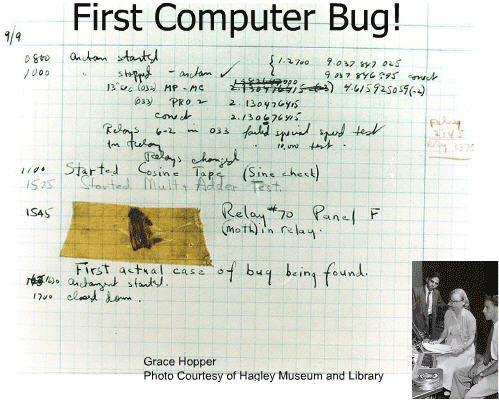 First Computer Bug!
9/9
0800 antan started
1000 " stopped - antan ✓
{ 1.2700 9.037 847 025
9.037 846 995 conect
13"uc (032) MP - MC 4.615925059(-2)
(033) PRO 2 2.130476415
conect 2.130676415
Relays 6-2 in 033 failed special speed test
in relay " 10,000 test.
Relay
2145
Relay 3370
Relays changed
1100 Started Cosine Tape (Sine check)
1525 Started Mult + Adder Test.
1545 Relay #70 Panel F
(moth) in relay.
First actual case of bug being found.
antangent started.
1700 closed down.
Grace Hopper
Photo Courtesy of Hagley Museum and Library